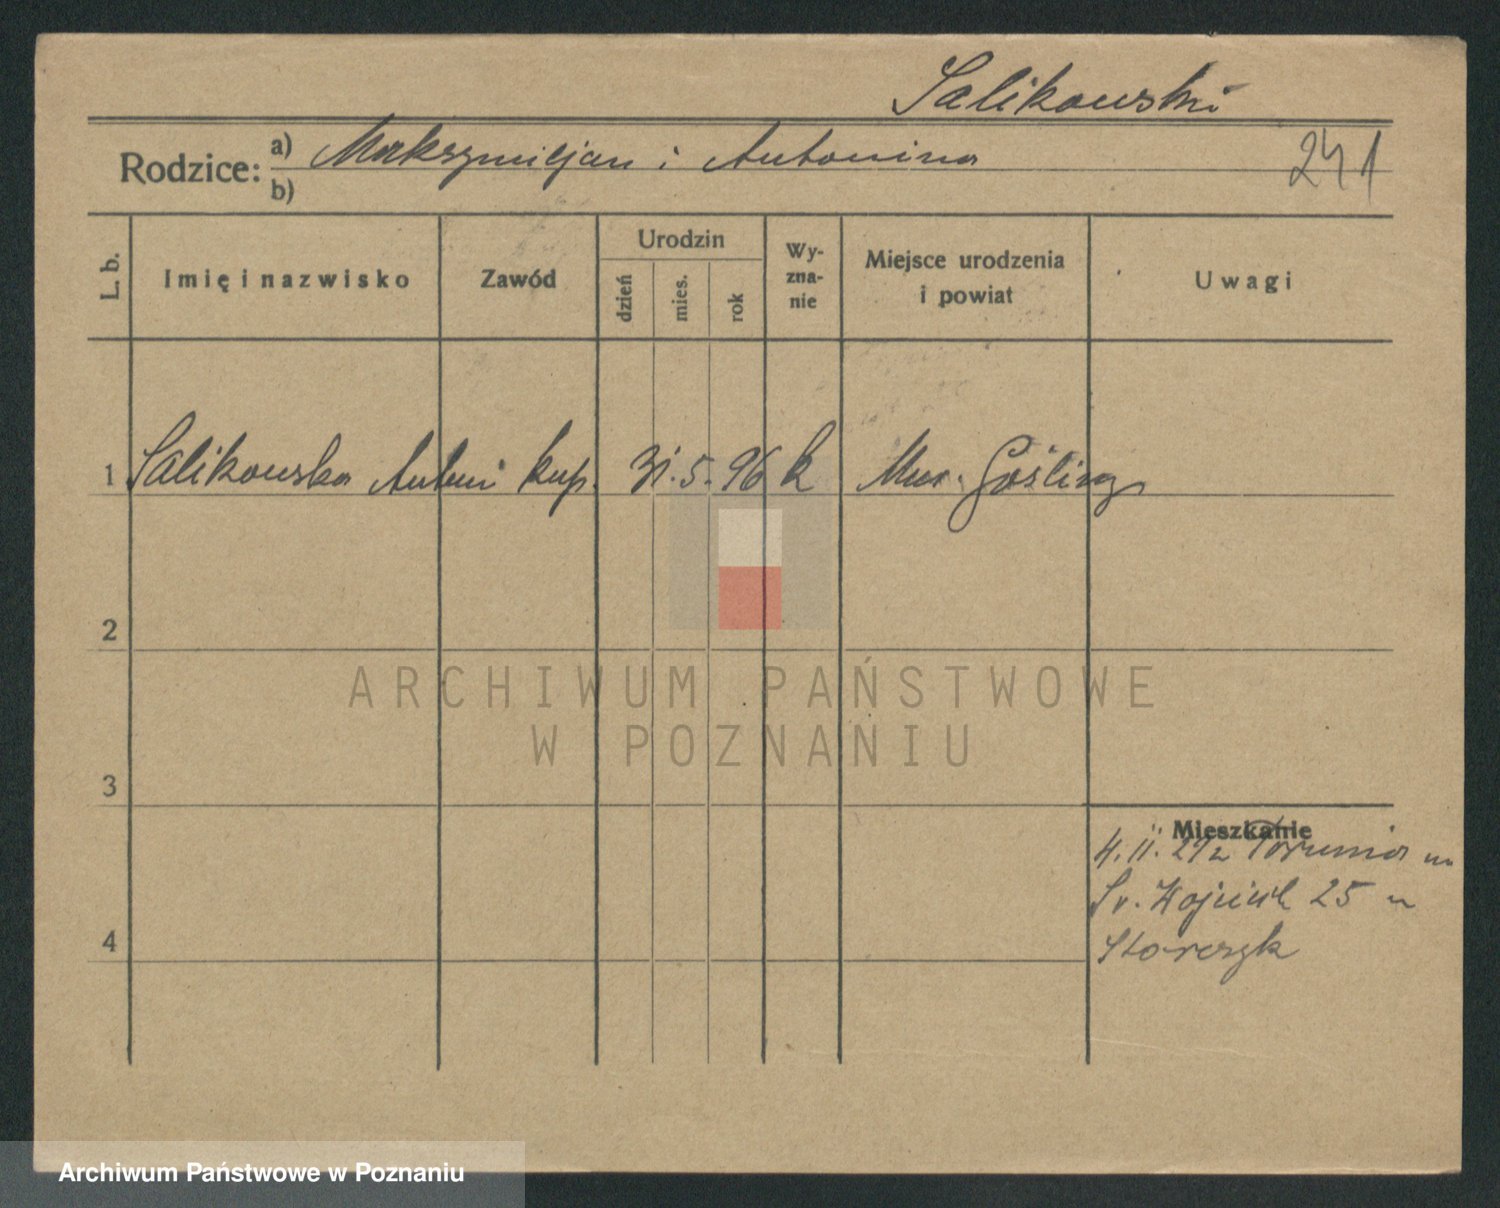 Salikowski
Rodzice: a) Maksymiljan i Antonina
b)
241
L. b. Imię i nazwisko Zawód Urodzin dzień mies. rok Wy-zna-nie Miejsce urodzenia i powiat Uwagi
1 Salikowska Antoni kup. 31. 5. 96 k Mur. Goślina
2
ARCHIWUM PAŃSTWOWE
W POZNANIU
3
Mieszkanie
4. 11. 21 z Torunia na
Św. Wojciech 25 u
4
Storczyk
Archiwum Państwowe w Poznaniu